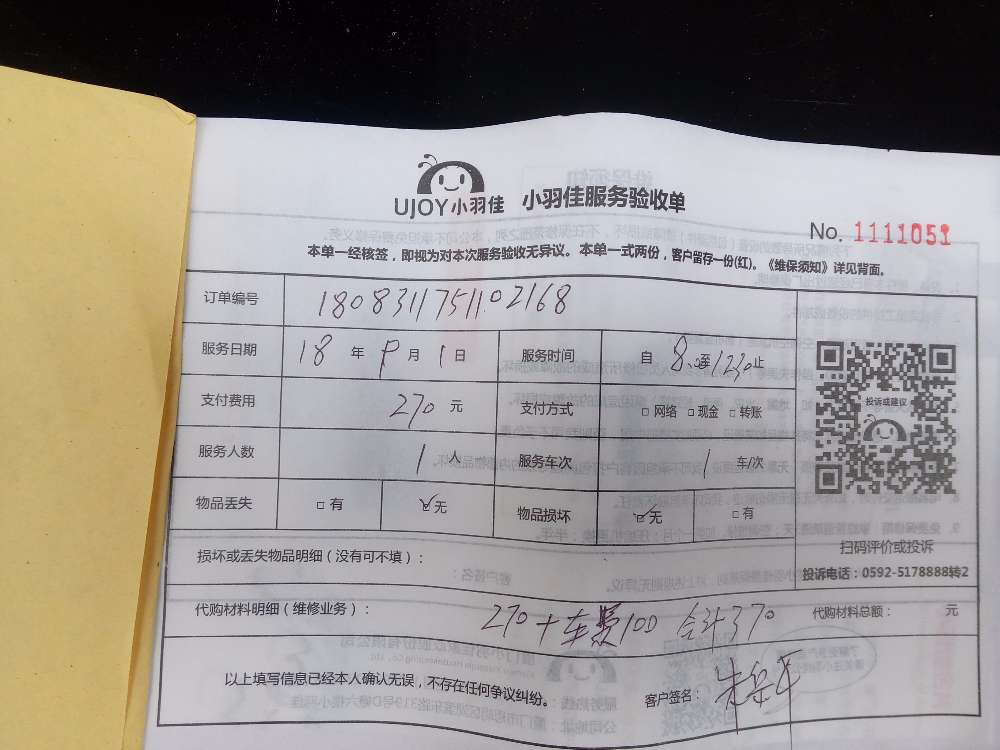 UJOY小羽佳 小羽佳服务验收单
No. 1111051
本单一经核签，即视为对本次服务验收无异议。本单一式两份，客户留存一份(红)。《维保须知》详见背面。
订单编号 1808311751102168
服务日期 18 年 9 月 1 日 服务时间 自 8:00至1230止
支付费用 270 元 支付方式 □网络 □现金 □转账
服务人数 1 人 服务车次 1 车/次
物品丢失 □有 ☑无 物品损坏 ☑无 □有
投诉或建议
扫码评价或投诉
投诉电话：0592-5178888转2
损坏或丢失物品明细（没有可不填）：
代购材料明细（维修业务）： 270+车费100 合计370 代购材料总额： 元
以上填写信息已经本人确认无误，不存在任何争议纠纷。 客户签名：